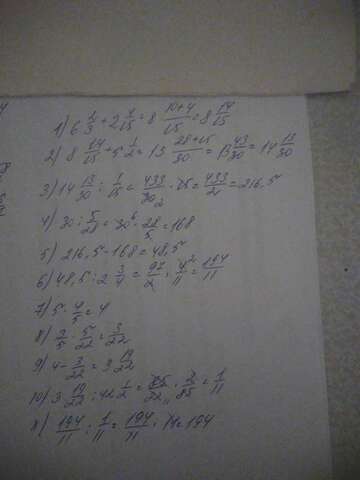 1) 6 2/3 + 2 4/15 = 8 10+4/15 = 8 14/15
2) 8 14/15 + 5 1/2 = 13 28+15/30 = 13 43/30 = 14 13/30
3) 14 13/30 : 1/15 = 433/30 2 · 15 = 433/2 = 216,5
4) 30 : 5/28 = 30 6 · 28/5 = 168
5) 216,5 - 168 = 48,5
6) 48,5 : 2 3/4 = 97/2 · 4 2/11 = 194/11
7) 5 · 4/5 = 4
8) 3/5 · 5/22 = 3/22
9) 4 - 3/22 = 3 19/22
10) 3 19/22 : 42 1/2 = 85/22 11 · 2/85 = 1/11
11) 194/11 : 1/11 = 194/11 · 11 = 194